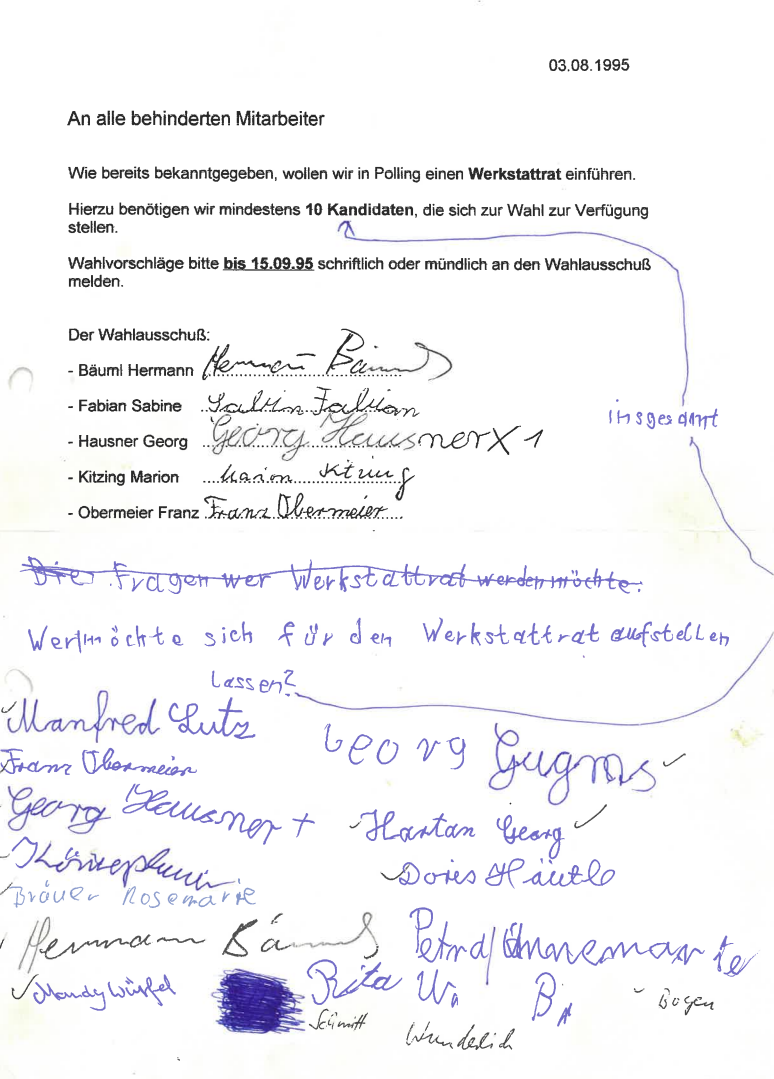 03.08.1995
An alle behinderten Mitarbeiter
Wie bereits bekanntgegeben, wollen wir in Polling einen Werkstattrat einführen.
Hierzu benötigen wir mindestens 10 Kandidaten, die sich zur Wahl zur Verfügung
stellen.
Wahlvorschläge bitte bis 15.09.95 schriftlich oder mündlich an den Wahlausschuß
melden.
Der Wahlausschuß:
- Bäuml Hermann Hermann Bäuml
- Fabian Sabine Sabin Fabian
insgesamt
- Hausner Georg Georg Hausner X 1
- Kitzing Marion Marion Kitzing
- Obermeier Franz Franz Obermeier
Die Fragen wer Werkstattrat werden möchte:
Wer möchte sich für den Werkstattrat aufstellen
lassen?
Manfred Lutz
Georg
Franz Obermeier
Georg Hausner + Hartan Georg
Doris Häutle
Bräuer Rosemarie
Hermann Bäuml Petra
Mandy Würfel Rita W. B. Bogen
Schmitt
Wunderlich